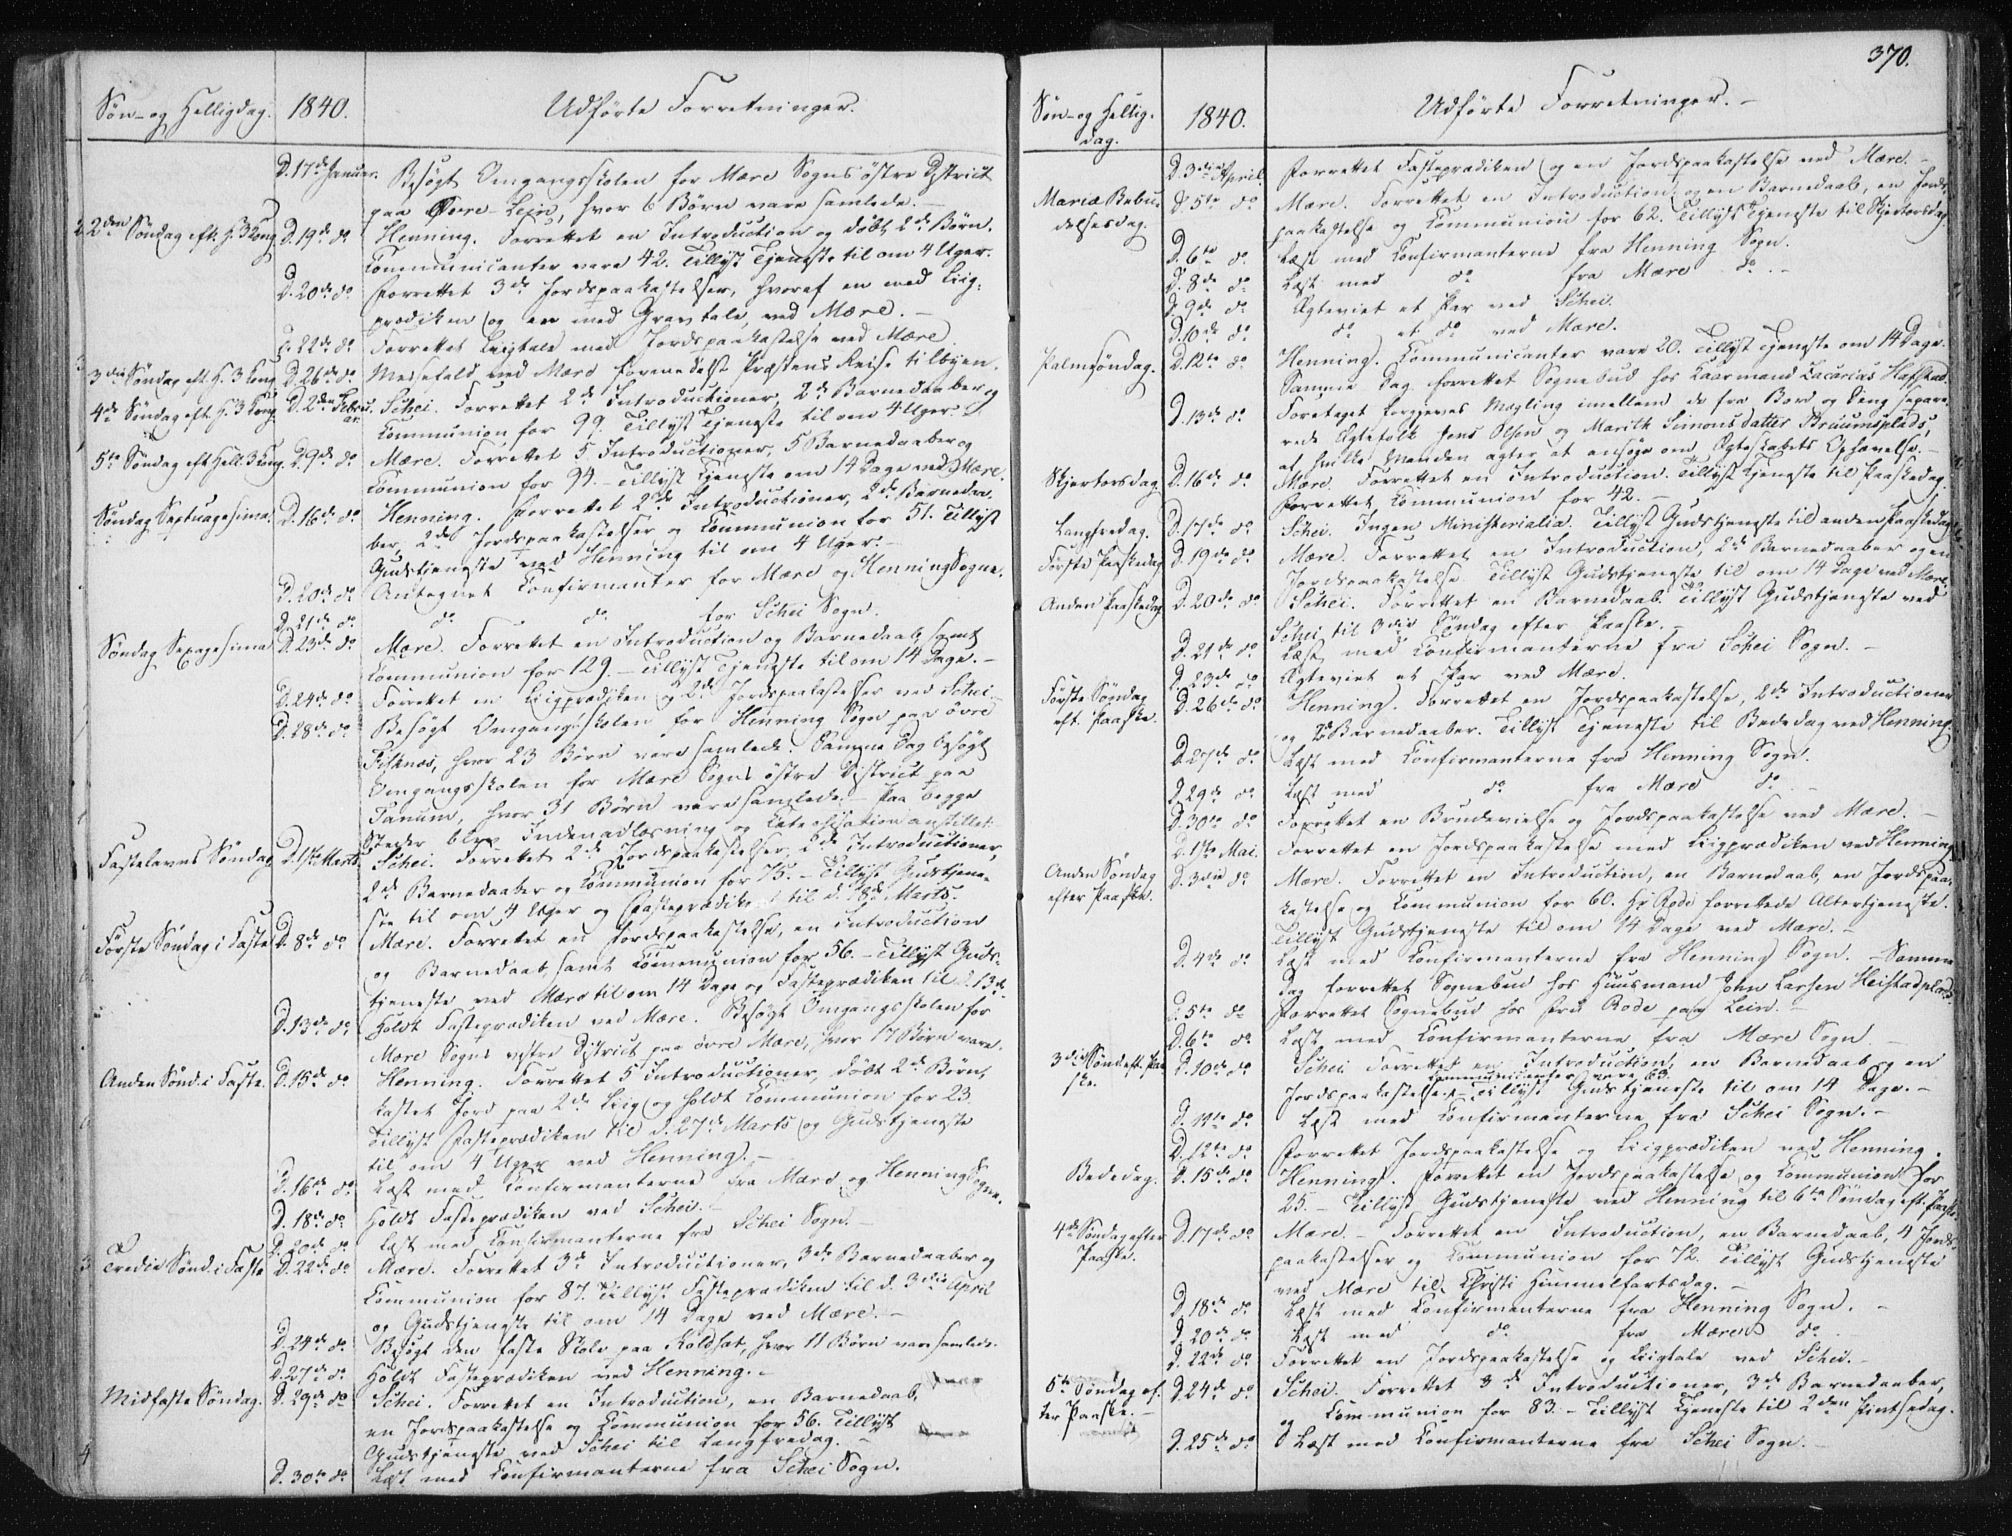 Søn- og Helligdag. 1840. Udførte Forretninger.
D. 17de Januar. Besøgt Omgangsskolen for Mære Sogns östre District
paa Øvre-Lein, hvor 6 Børn vare samlede. -
2den Søndag eft. H. 3 Kong. D. 19de do Henning. Forrettet en Introduction og døbt 2de Børn.
Communicanter vare 42. Tillyst Tjeneste til om 4 Uger.
D. 20de do Forrettet 3de Jordspaakastelser, hvoraf en med Liig-
prædiken og en med Gravtale, ved Mære. -
D. 22de do Forrettet Liigtale med Jordspaakastelse ved Mære
3die Søndag eft. H. 3 Kong. D. 26de do Messefald ved Mære formedelst Præstens Reise til byen.
4de Søndag eft. H. 3 Kong. D. 2den Februar. Schei. Forrettet 2de Introductioner, 2de Barnedaaber og
Communion for 99. Tillyst Tjeneste til om 4 Uger.
5te Søndag eft Hell. 3 Kong. D. 9de do Mære. Forrettet 5 Introductioner, 5 Barnedaaber og
Communion for 94. - Tillyst Tjeneste om 14 Dage ved Mære.
Søndag Septuagesima. D. 16de do Henning. Forrettet 2de Introductioner, 2de Barnedaa-
ber, 2de Jordspaakastelser og Communion for 51. Tillyst
Gudstjeneste ved Henning til om 4 Uger. -
D. 20de do Antegnet Confirmanter for Mære og Henning Sogne.
D. 21de do do do for Schei Sogn.
Søndag Sexagesima D. 23de do Mære. Forrettet en Introduction og Barnedaab, samt
Communion for 129. - Tillyst Tjeneste til om 14 Dage. -
D. 24de do Forrettet en Liigprædiken og 2de Jordspaakastelser ved Schei -
D. 28de do Besøgt Omgangsskolen for Henning Sogn paa övre
Filknæs, hvor 23 Børn vare samlede. Samme Dag besøgt
Omgangsskolen for Mære Sogns östre District paa
Tanum, hvor 31 Børn vare samlede. - Paa begge
Steder blev Indenadlæsning og Catechisation anstillet.
Fastelavns Søndag D. 1ste Marts. Schei. Forrettet 2de Jordspaakastelser, 2de Introductioner,
2de Barnedaaber og Communion for 75. - Tillyst Gudstjene-
ste til om 4 Uger og Fasteprædiken til d. 18de Marts.
Første Søndag i Faste D. 8de do Mære. Forrettet en Jordspaakastelse, en Introduction
og Barnedaab, samt Communion for 56. - Tillyst Guds-
tjeneste ved Mære til om 14 Dage og Fasteprædiken til d. 13de.
D. 13de do Holdt Fasteprædiken ved Mære. Besøgt Omgangsskolen for
Mære Sogns vestre District paa övre Mære, hvor 17 Børn vare.
Anden Sønd. i Faste. D. 15de do Henning. Forrettet 5 Introductioner, døbt 2de Børn,
kastet Jord paa 2de Liig og holdt Communion for 23.
Tillyst Fasteprædiken til d. 27de Marts og Gudstjeneste
til om 4 Uger ved Henning. -
D. 16de do Læst med Confirmanterne fra Mære og Henning Sogne.
D. 18de do Holdt Fasteprædiken ved Schei. -
D. 20de do Læst med Confirmanterne fra Schei Sogn. -
Tredie Sønd. i Faste D. 22de do Mære. Forrettet 3de Introductioner, 3de Barnedaaber og
Communion for 87. Tillyst Fasteprædiken til d. 3die April
og Gudstjeneste til om 14 Dage ved Mære. -
D. 24de do Besøgt den faste Skole paa Koldsat, hvor 11 Børn vare samlede.
D. 27de do Holdt Fasteprædiken ved Henning. -
Midfaste Søndag. D. 29de do Schei. Forrettet en Introduction, en Barnedaab,
en Jordspaakastelse og Communion for 56. Tillyst
Gudstjeneste ved Schei til Langfredag. -
D. 30te do Læst med Confirmanterne fra Schei Sogn.
370.
Søn- og Hellig-
dag. 1840. Udførte Forretninger. -
D. 3die April. Forrettet Fasteprædiken og en Jordspaakastelse ved Mære. -
Mariæ Bebu-
delsesdag. D. 5te do Mære. Forrettet en Introduction og en Barnedaab, en Jords-
paakastelse og Communion for 62. Tillyst Tjeneste til Skjertorsdag.
D. 6te do Læst med Confirmanterne fra Henning Sogn.
D. 8de do Læst med do fra Mære do. -
D. 9de do Ægteviet et Par ved Schei.
D. 10de do do et do ved Mære.
Palmesøndag. D. 12te do Henning. Communicanter vare 20. Tillyst Tjeneste om 14 Dage.
Samme Dag forrettet Sognebud hos Kaarmand Zacarias Hafstad.
D. 13de do Foretaget borgerens Mægling imellem de fra Bord og Seng separe-
rede Ægtefolk Jens Olsen og Marith Simonsdatter Bruumsplads,
af hvilke Manden agter at ansøge om Ægteskabets Ophævelse. -
Skjertorsdag D. 16de do Mære. Forrettet en Introduction. Tillyst Tjeneste til Paaskedag.
Forrettet Communion for 42. -
Langfredag. D. 17de do Schei. Ingen Ministerialia. Tillyst Gudstjeneste til anden Paaskedag
Første Paaskedag D. 19de do Mære. Forrettet en Introduction, 2de Barnedaaber og en
Jordspaakastelse. Tillyst Gudstjeneste til om 14 Dage ved Mære.
Anden Paaskedag D. 20de do Schei. Forrettet en Barnedaab. Tillyst Gudstjeneste ved
Schei til 3die Søndag efter Paaske. -
D. 21de do Læst med Confirmanterne fra Schei Sogn. -
D. 23de do Ægteviet et Par ved Mære.
Første Søndag
eft. Paaske. D. 26de do Henning. Forrettet en Jordspaakastelse, 2de Introductioner
og 2de Barnedaaber. Tillyst Tjeneste til Bededag ved Henning.
D. 27de do Læst med Confirmanterne fra Henning Sogn.
D. 29de do Læst med do fra Mære do. -
D. 30te do Forrettet en Brudevielse og Jordspaakastelse ved Mære. -
D. 1ste Mai. Forrettet en Jordspaakastelse med Liigprædiken ved Henning
Anden Søndag
efter Paaske. D. 3die do Mære. Forrettet en Introduction, en Barnedaab, en Jordspaa-
kastelse og Communion for 60. Hr Rode forrettede Altertjeneste.
Tillyst Gudstjeneste til om 14 Dage ved Mære. -
D. 4de do Læst med Confirmanterne fra Henning Sogn. - Samme
Dag forrettet Sognebud hos Huusmand John Larsen Heistadplads.
D. 5te do Forrettet Sognebud hos Fru Rode paa Lein. -
D. 6te do Læst med Confirmanterne fra Mære Sogn. -
3die Sønd. eft. Paa-
ske. D. 10de do Schei Forrettet en Introduction, en Barnedaab og en
Communicanter vare 63.
Jordspaakastelse. - Tillyst Gudstjeneste til om 14 Dage. -
D. 11te do Læst med Confirmanterne fra Schei Sogn. -
D. 12te do Forrettet Jordspaakastelse og Liigprædiken ved Henning.
Bededag. D. 15de do Henning. Forrettet en Jordspaakastelse og Communion for
25. - Tillyst Gudstjeneste ved Henning til 6te Søndag eft. Paaske.
4de Søndag efter
Paaske. D. 17de do Mære. - Forrettet en Introduction, en Barnedaab, 4 Jords-
paakastelser og Communion for 72. Tillyst Gudstjeneste
ved Mære til Christi Himmelfartsdag. -
D. 18de do Læst med Confirmanterne fra Henning Sogn. -
D. 20de do Læst med do fra Mære do.
D. 22de do Forrettet en Jordspaakastelse og Liigtale ved Schei. -
5te Søndag ef-
ter Paaske. - D. 24de do Schei. Forrettet 3de Introductioner, 3de Barnedaaber,
og Communion for 83. - Tillyst Tjeneste til 2den Pintsedag.
D. 25de do Læst med Confirmanterne fra Schei Sogn. -